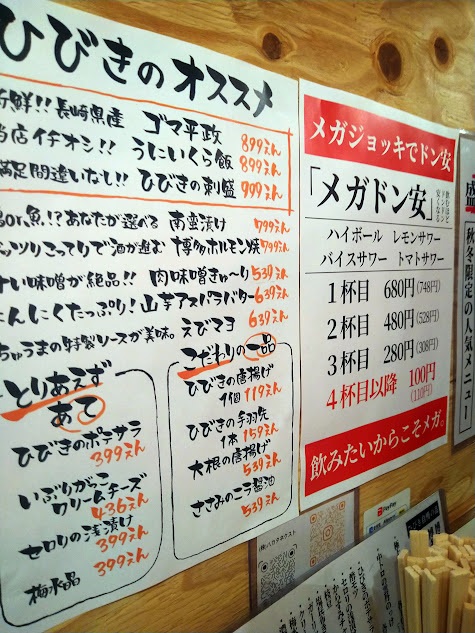 ひびきのオススメ
新鮮!! 長崎県産 ゴマ平政 899えん
当店イチオシ!! うにいくら飯 899えん
満足間違いなし!! ひびきの刺盛 999えん
or魚!?あなたが選べる 南蛮漬け 799えん
こってりで酒が進む 博多ホルモン焼 799えん
味噌が絶品!! 肉味噌きゅ〜り 539えん
にんにくたっぷり! 山芋アスパラバター 639えん
ちゅうまの特製ソースが美味。 えびマヨ 639えん
とりあえず
あて
ひびきのポテサラ
399えん
いぶりがっこ
クリームチーズ
436えん
セロリの浅漬け
399えん
梅水晶 399えん
こだわりの一品
ひびきの唐揚げ
1個 119えん
ひびきの手羽先
1本 159えん
大根の唐揚げ
539えん
ささみのニラ醤油
539えん
メガジョッキでドン安
「メガドン安」
飲むほど
ドンドン
安くなる
ハイボール レモンサワー
バイスサワー トマトサワー
1杯目 680円(748円)
2杯目 480円(528円)
3杯目 280円(308円)
4杯目以降 100円
(110円)
飲みたいからこそメガ。
盛
秋冬限定の人気メニュー
PayPay